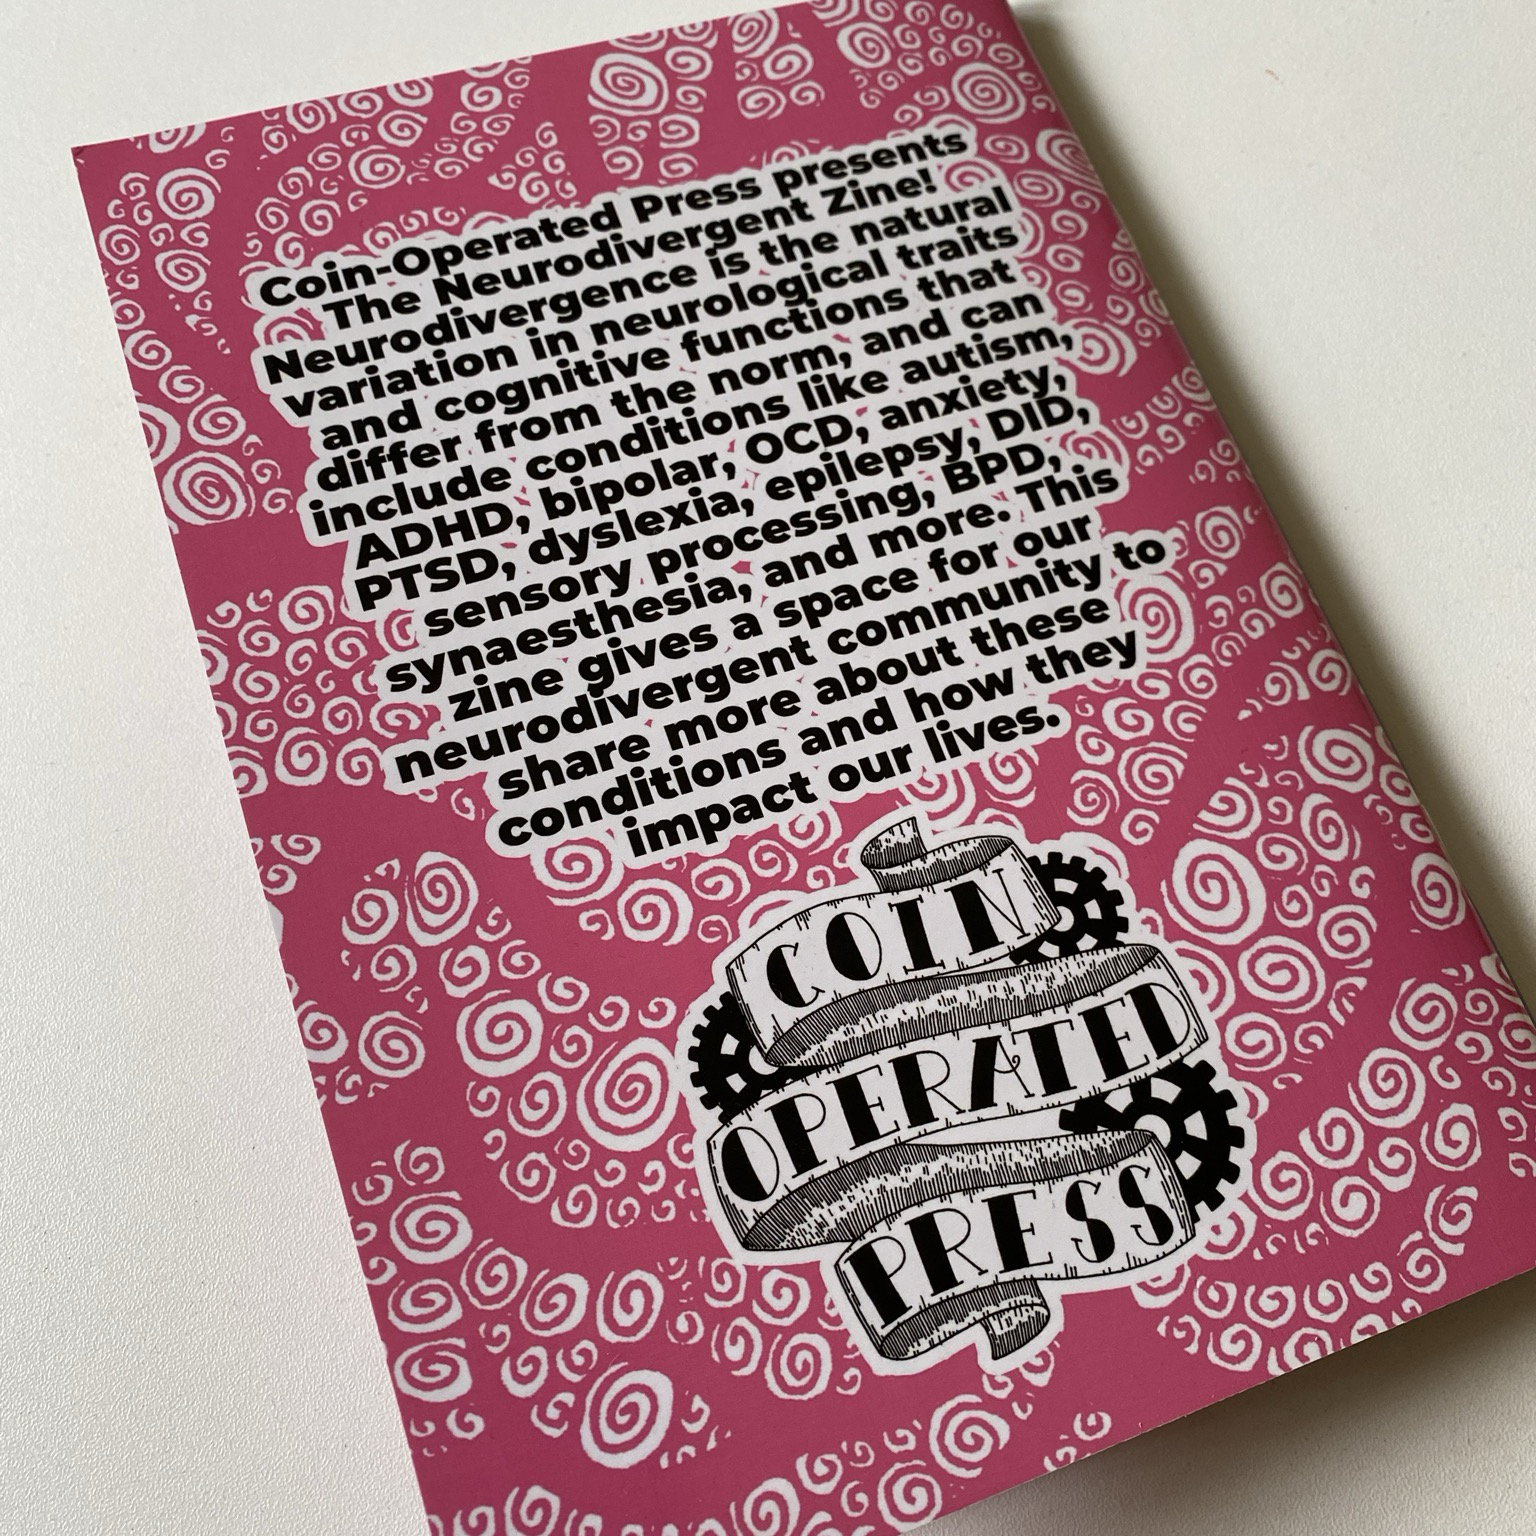 Coin-Operated Press presents
The Neurodivergent Zine!
Neurodivergence is the natural
variation in neurological traits
and cognitive functions that
differ from the norm, and can
include conditions like autism,
ADHD, bipolar, OCD, anxiety,
PTSD, dyslexia, epilepsy, DID,
sensory processing, BPD,
synaesthesia, and more. This
zine gives a space for our
neurodivergent community to
share more about these
conditions and how they
impact our lives.
COIN
OPERATED
PRESS